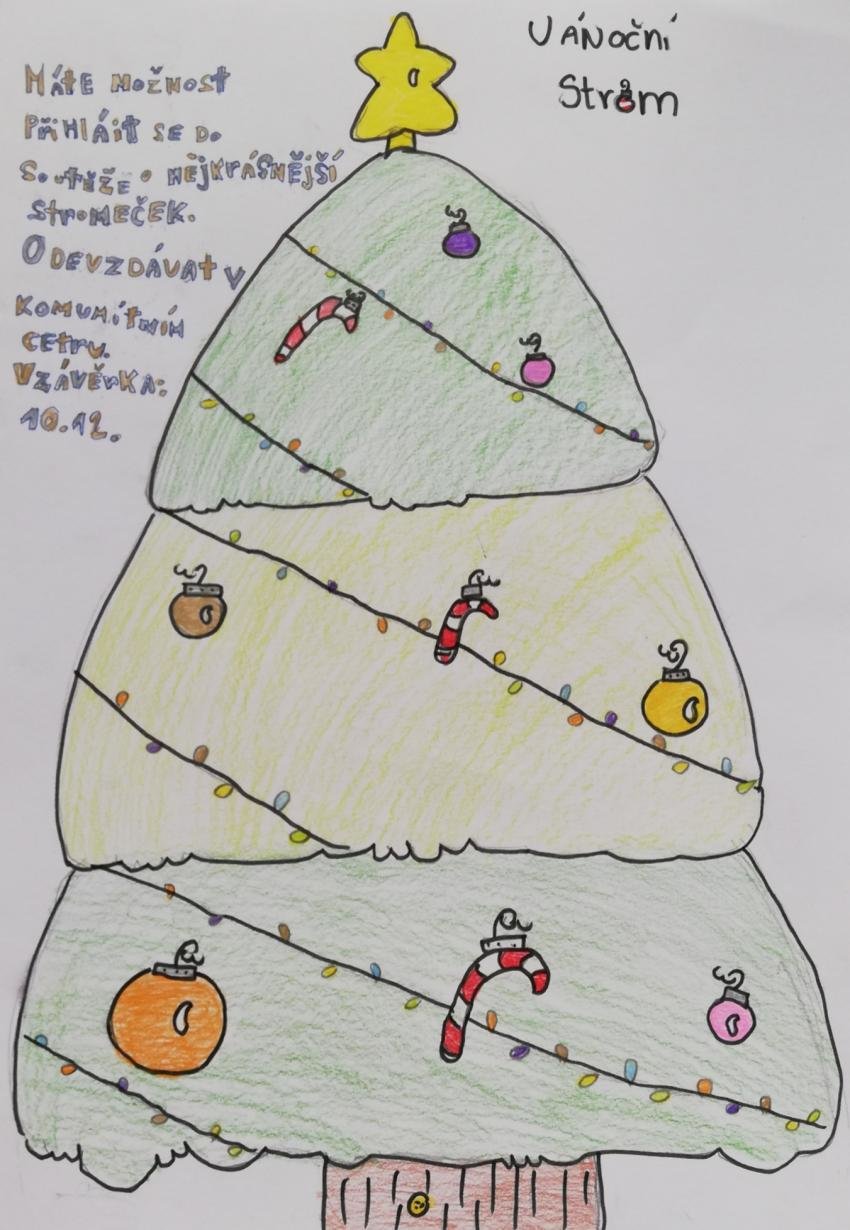 Vánoční
Strom
Máte možnost
Přihlásit se do
Soutěže o nejkrásnější
Stromeček.
Odevzdávat v
komunitním
cetru.
Vzávěrka:
10.12.